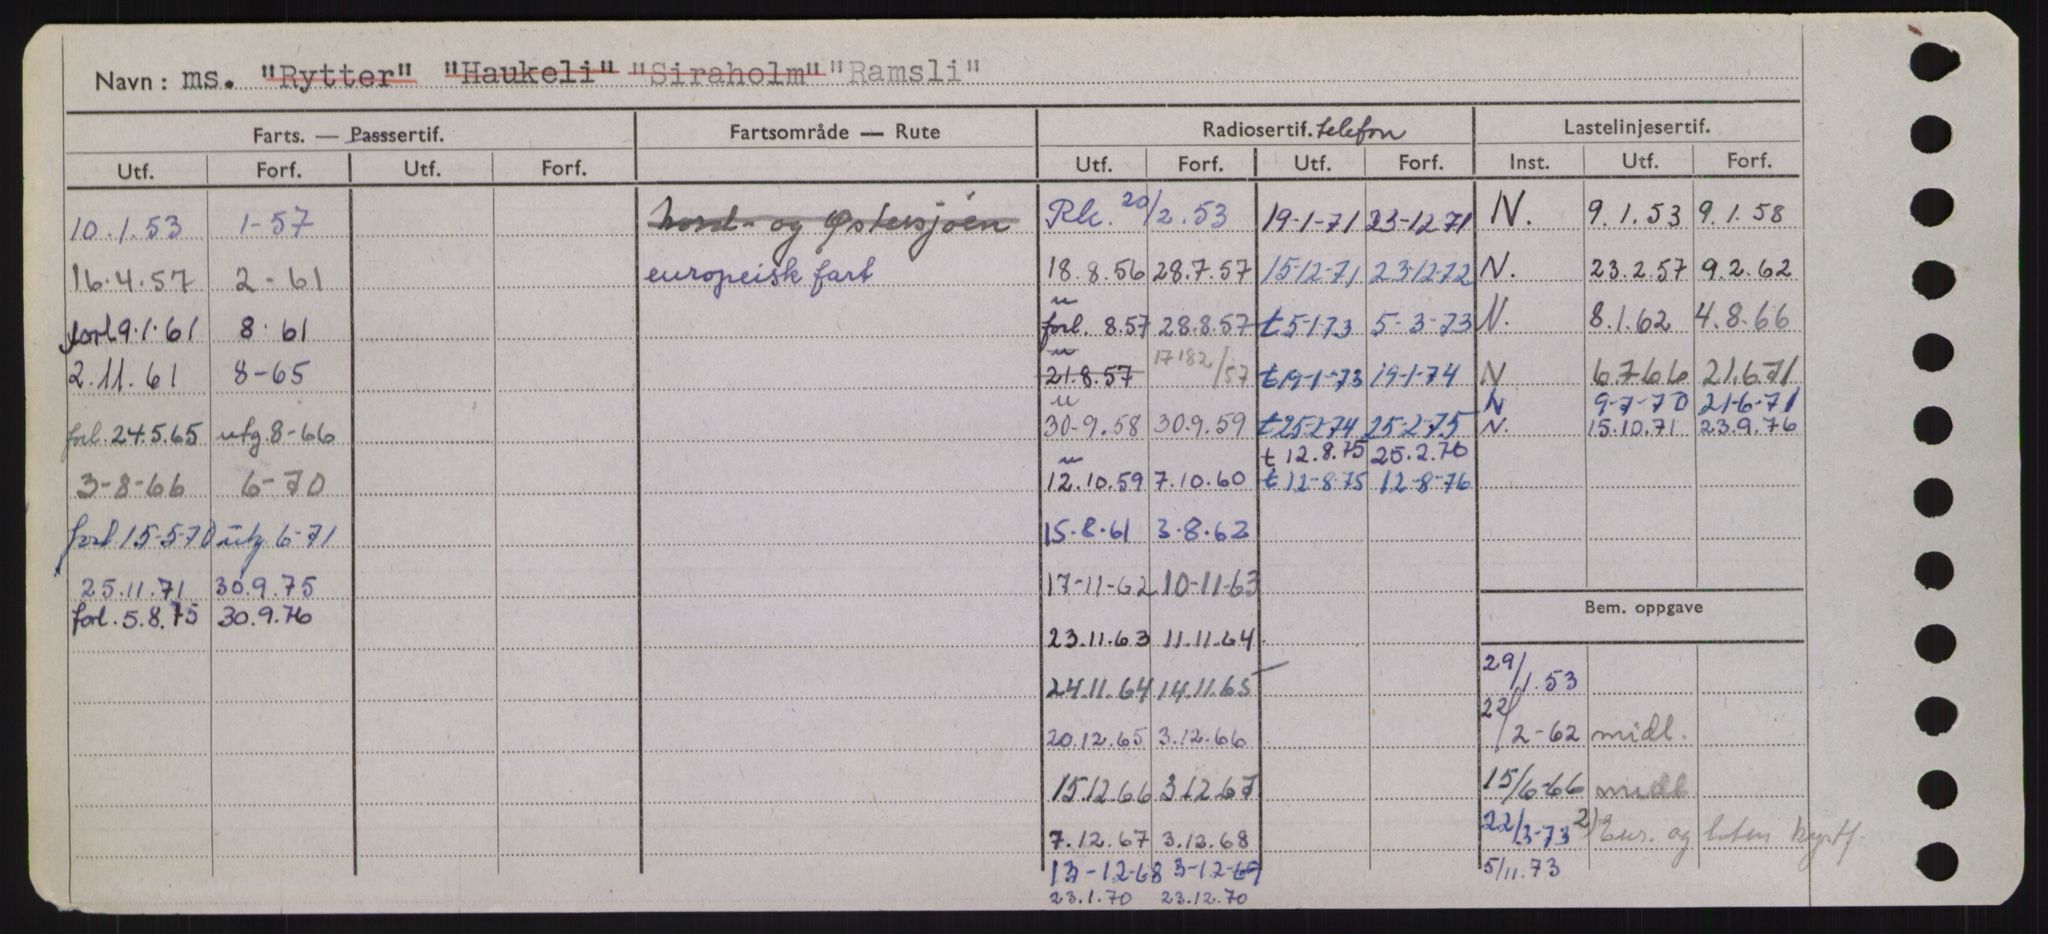 Navn: ms. "Rytter" "Haukeli" "Siraholm" "Ramsli"
Farts. — Passsertif. Fartsområde — Rute Radiosertif. telefon Lastelinjesertif.
Utf. Forf. Utf. Forf. Utf. Forf. Utf. Forf. Inst. Utf. Forf.
10.1.53 1-57 Nord- og Østersjøen Rk. 20/2.53 19-1-71 23-12.71 N. 9.1.53 9.1.58
16.4.57 2-61 europeisk fart 18.8.56 28.7.57 15-12-71 23-12-72 N. 23.2.57 9.2.62
forl 9.1.61 8.61 u forl. 8.57 28.8.57 t 5-1-73 5-3-73 N. 8.1.62 4.8.66
2.11.61 8-65 u 21.8.57 /57 t 19-1-73 19-1-74 N 6.7.66 21.6.71
N 9-7-70 21-6-71
forl. 24.5.65 utg. 8-66 u 30-9.58 30.9.59 t 25-2-74 25-2-75 N. 15.10.71 23.9.76
t 12.8.75 25.2.76
3-8-66 6-70 u 12.10.59 7.10.60 t 12-8-75 12-8-76
forl 15-5-70 utg 6-71 15.8.61 3.8.62
25.11.71 30.9.75 17-11-62 10-11-63
forl. 5.8.75 30.9.76 Bem. oppgave
23.11.63 11.11.64
24.11.64 14.11.65 29/1.53
20.12.65 3.12.66 22/2-62 midl.
15.12.66 3.12.67 15/6-66 midl
7.12.67 3.12.68 22/3-73 2) Eur. og liten kystf.
13-12-68 3-12-69 5/11.73
23.1.70 23.12.70